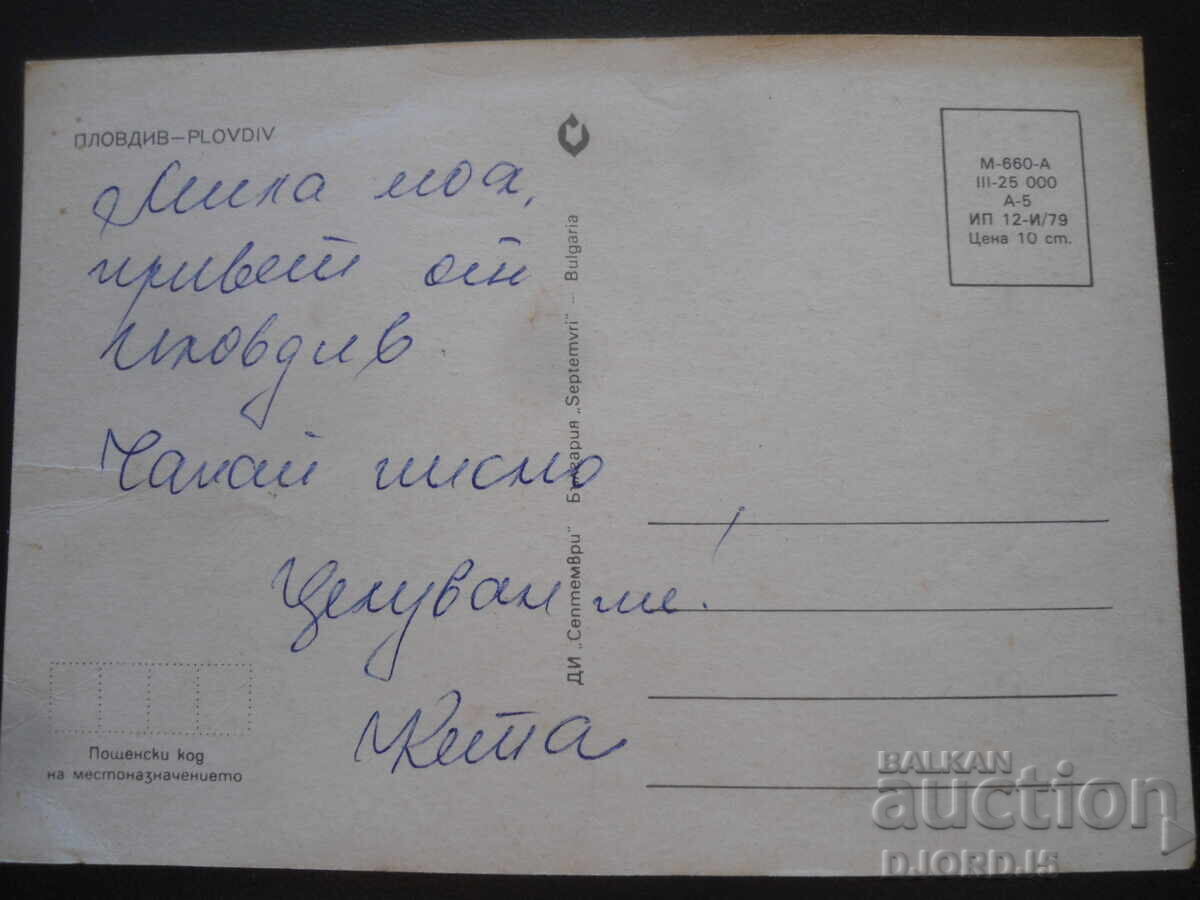 ПЛОВДИВ—PLOVDIV
Мила моя,
привет от
Пловдив
Чакай писмо
Целувам те!
Кета
Пощенски код
на местоназначението
ДИ „Септември" България „Septemvri" – Bulgaria
М-660-А
III-25 000
А-5
ИП 12-И/79
Цена 10 ст.
BALKAN
auction
DJORDJ5